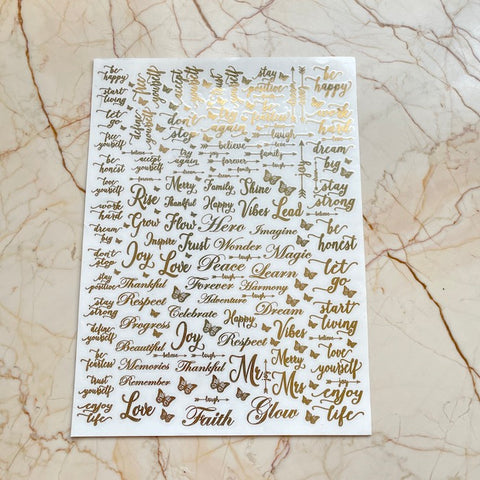 be happy
start living
let go
free yourself
be honest
love yourself
work hard
dream big
stay positive
stay strong
define yourself
be fearless
trust yourself
enjoy life
define yourself
free yourself
accept yourself
don't stop
try again
accept yourself
stay positive
be fearless
try again
laugh
believe
joy
family
forever
laugh
be happy
work hard
dream big
stay strong
be honest
let go
start living
love yourself
joy
enjoy life
Merry Family Shine
Rise Thankful Happy Vibes Lead
Grow Flow Hero Imagine
Inspire Trust Wonder Magic
Joy Love Peace Learn
Thankful Forever Harmony
Respect Adventure Dream
Celebrate Happy
Progress Joy Respect Vibes
Beautiful believe laugh Merry
Memories Thankful Mr
Remember Mrs
Love laugh Glow
Faith